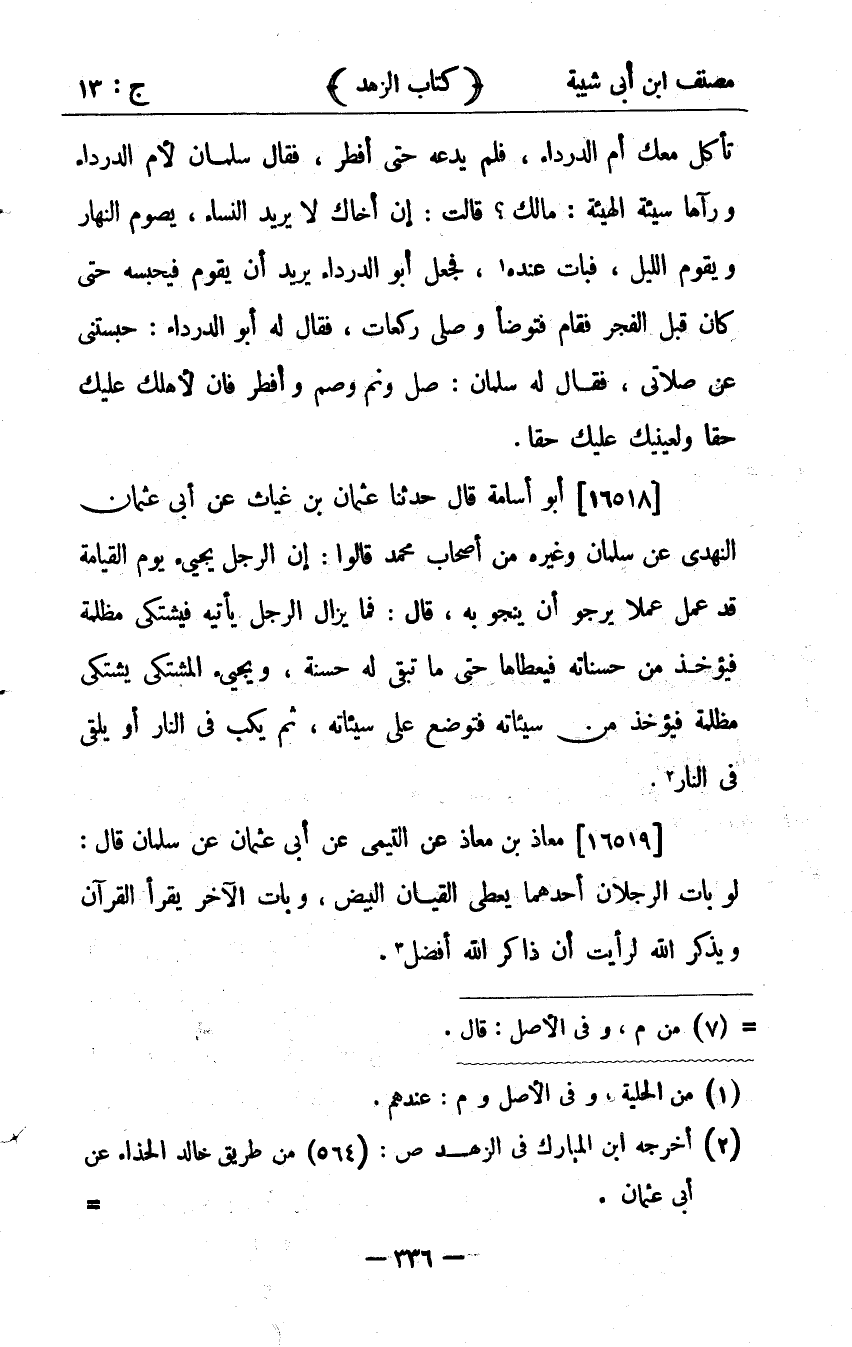 مصنف ابن أبى شيبة ﴿ كتاب الزهد ﴾ ج : ١٣
تأكل معك أم الدرداء ، فلم يدعه حتى أفطر ، فقال سلمان لأم الدرداء
و رآها سيئة الهيئة : مالك ؟ قالت : إن أخاك لا يريد النساء ، يصوم النهار
و يقوم الليل ، فبات عنده١ ، فجعل أبو الدرداء يريد أن يقوم فيحبسه حتى
كان قبل الفجر فقام فتوضأ و صلى ركعات ، فقال له أبو الدرداء : حبستنى
عن صلاتى ، فقال له سلمان : صل ونم وصم و أفطر فان لأهلك عليك
حقا ولعينيك عليك حقا .
[١٦٥١٨] أبو أسامة قال حدثنا عثمان بن غياث عن أبى عثمان
النهدى عن سلمان وغيره من أصحاب محمد قالوا : إن الرجل يجيء يوم القيامة
قد عمل عملا يرجو أن ينجو به ، قال : فما يزال الرجل يأتيه فيشتكى مظلمة
فيؤخذ من حسناته فيعطاها حتى ما تبقى له حسنة ، و يجيء المشتكى يشتكى
مظلمة فيؤخذ من سيئاته فتوضع على سيئاته ، ثم يكب فى النار أو يلقى
فى النار٢ .
[١٦٥١٩] معاذ بن معاذ عن التيمى عن أبى عثمان عن سلمان قال :
لو بات الرجلان أحدهما يعطى القيان البيض ، و بات الآخر يقرأ القرآن
و يذكر الله لرأيت أن ذاكر الله أفضل٣ .
= (٧) من م ، و فى الأصل : قال .
(١) من الحلية ، و فى الأصل و م : عندهم .
(٢) أخرجه ابن المبارك فى الزهد ص : (٥٦٤) من طريق خالد الحذاء عن
أبى عثمان . =
— ٣٣٦ —